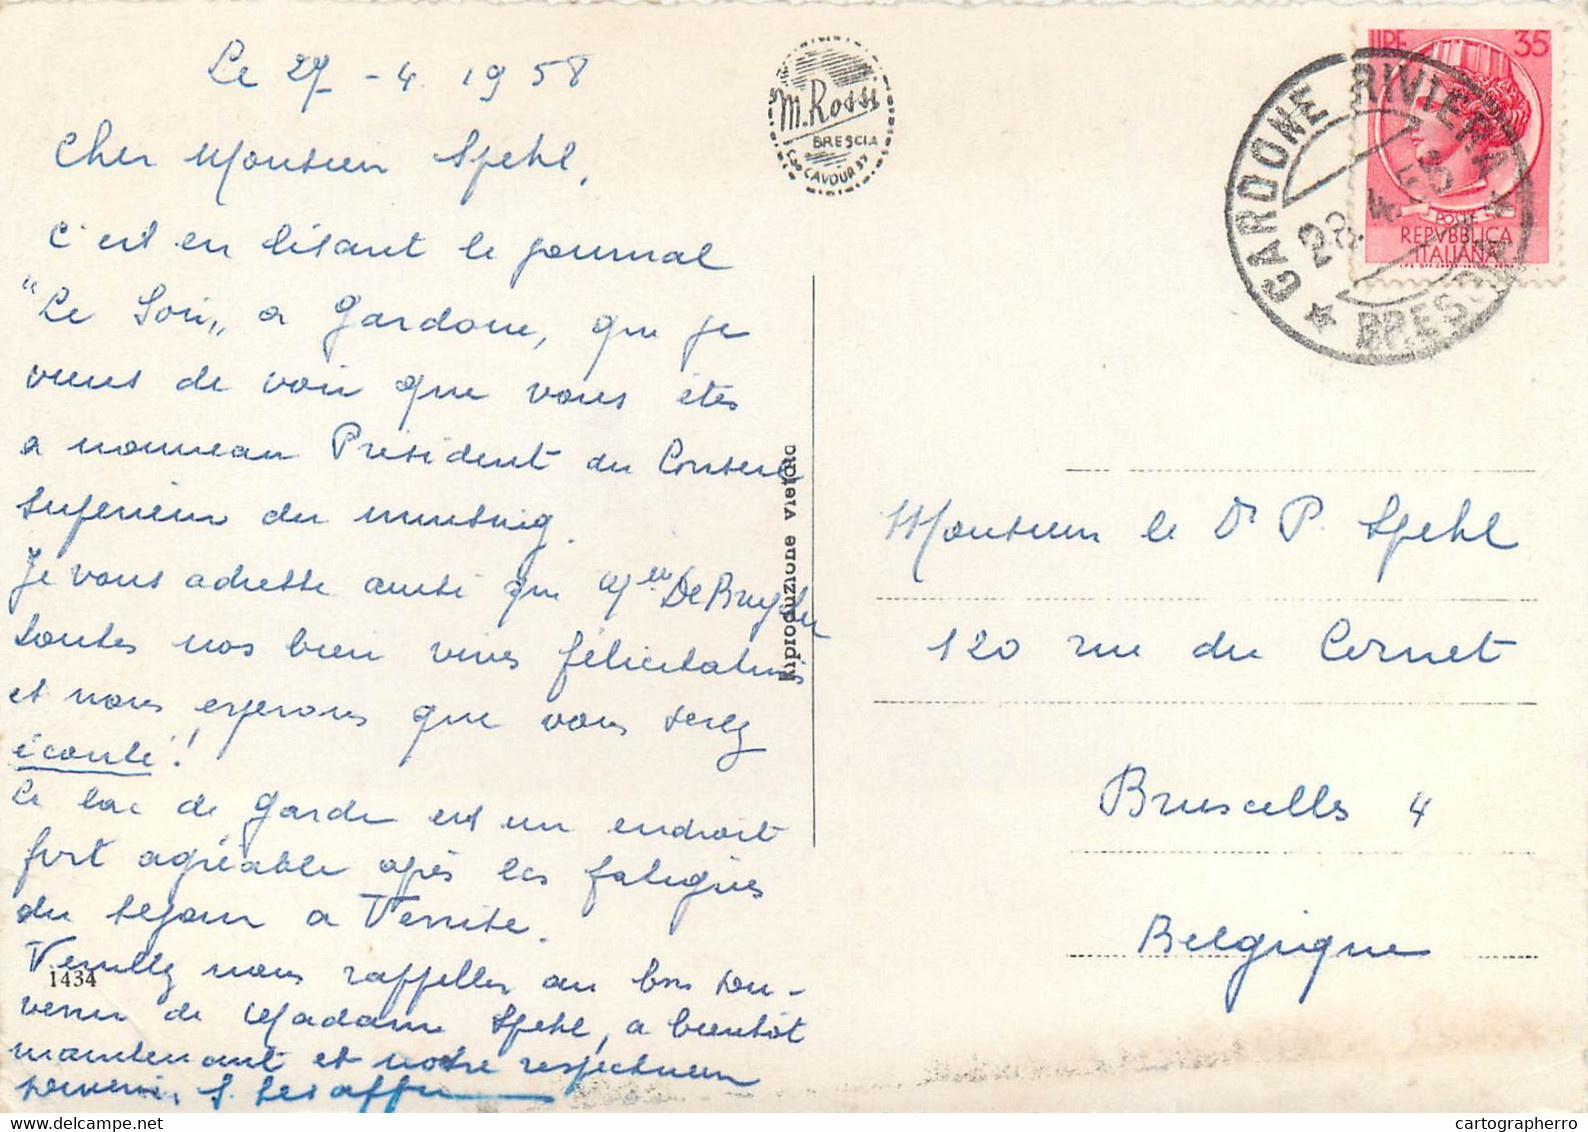 Le 27 - 4. 1958
Cher Monsieur Spehl,
c'est en lisant le journal
"Le Soir„ a Gardone, que je
viens de voir que vous êtes
a nouveau Président du Conseil
superieur du
Je vous adresse ainsi que Mlle De Bruycker
toutes nos bien vives félicitations
et nous esperons que vous serez
écouté!
Le lac de Garde est un endroit
fort agréable après les fatigues
du sejour a Venise.
Veuillez nous rappeller au bon sou-
venir de Madame Spehl, a bientôt
maintenant et notre respectueux
souvenir,
1434
M. Rossi
BRESCIA
Cso CAVOUR 37
Riproduzione vietata
LIRE 35
POSTE
REPVBBLICA
ITALIANA
GARDONE RIVIERA
28.4.58
BRESCIA
Monsieur le Dr P. Spehl
120 rue du Cornet
Bruxelles 4
Belgique
cartographerro